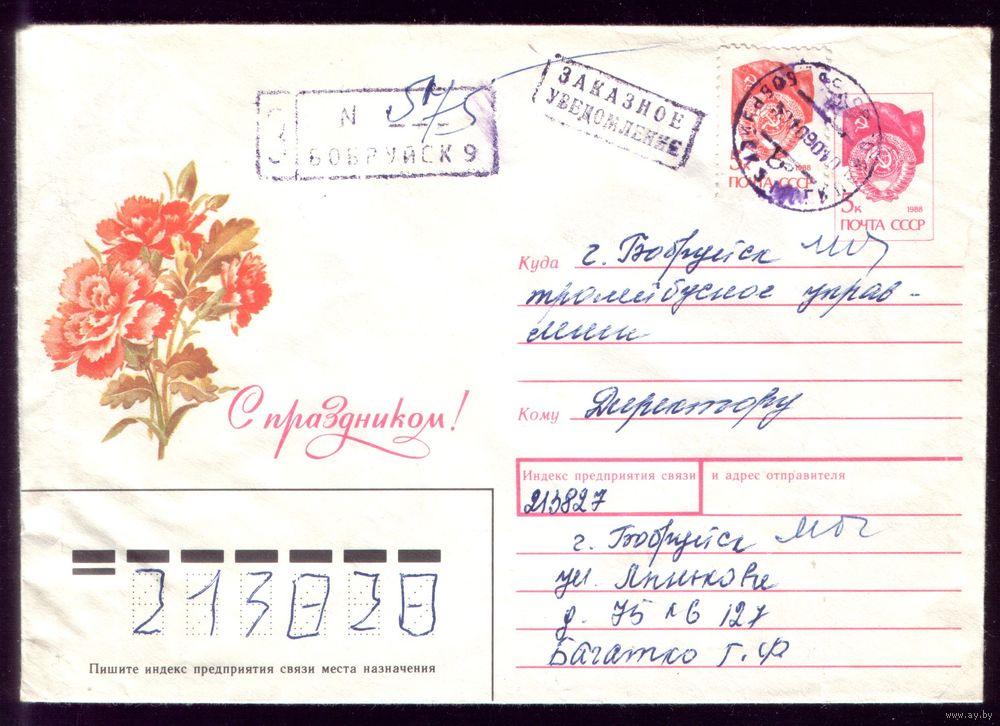 N 575
БОБРУЙСК 9
ЗАКАЗНОЕ
УВЕДОМЛЕНИЕ
1988
ПОЧТА СССР
5к 1988
ПОЧТА СССР
Куда г. Бобруйск
тролейбусное управ-
Кому Директору
С праздником!
Индекс предприятия связи и адрес отправителя
213827
г. Бобруйск
ул.
д. 75 127
Багатко Г.Ф
213020
Пишите индекс предприятия связи места назначения
www.ay.by